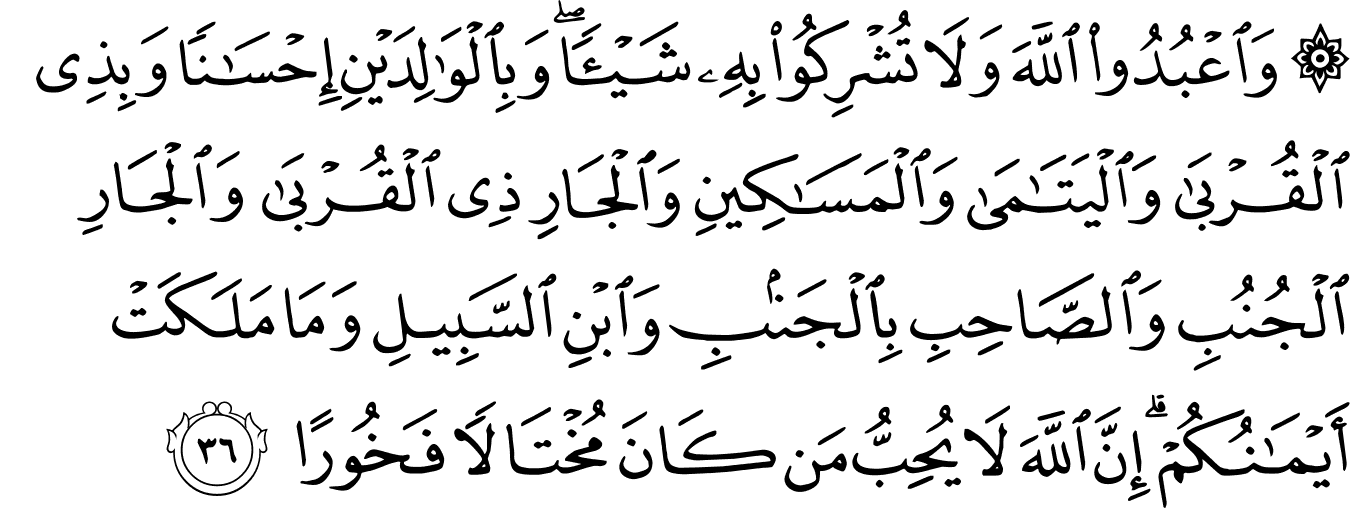 ۞ وَٱعْبُدُوا۟ ٱللَّهَ وَلَا تُشْرِكُوا۟ بِهِۦ شَيْـًٔا ۖ وَبِٱلْوَٰلِدَيْنِ إِحْسَـٰنًا وَبِذِى
ٱلْقُرْبَىٰ وَٱلْيَتَـٰمَىٰ وَٱلْمَسَـٰكِينِ وَٱلْجَارِ ذِى ٱلْقُرْبَىٰ وَٱلْجَارِ
ٱلْجُنُبِ وَٱلصَّاحِبِ بِٱلْجَنۢبِ وَٱبْنِ ٱلسَّبِيلِ وَمَا مَلَكَتْ
أَيْمَـٰنُكُمْ ۗ إِنَّ ٱللَّهَ لَا يُحِبُّ مَن كَانَ مُخْتَالًا فَخُورًا ٣٦